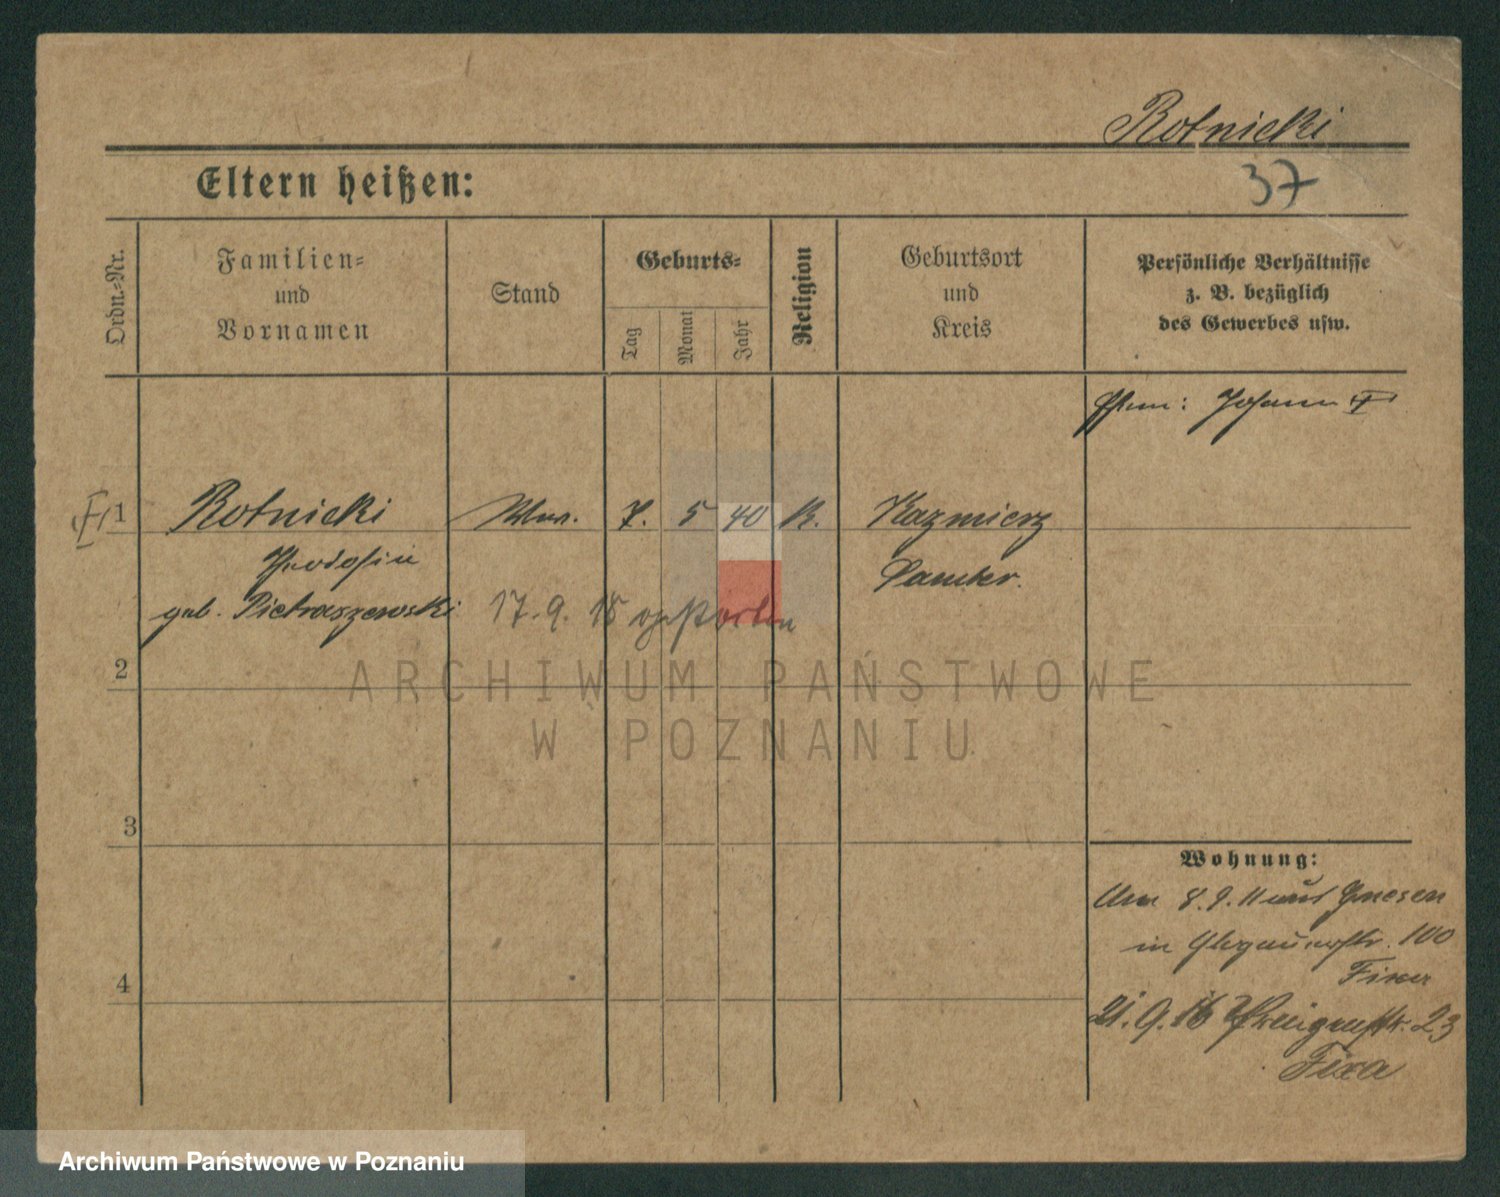 Rotnicki
Eltern heißen:
37
Ordn.-Nr.
Familien-
und
Vornamen
Stand
Geburts-
Tag
Monat
Jahr
Religion
Geburtsort
und
Kreis
Persönliche Verhältnisse
z. B. bezüglich
des Gewerbes usw.
Johann
1 Rotnicki Wwe. 7. 5 40 K. Kazmierz
Samter.
geb. Pietraszewski 17. 9. 18 gestorben
2
3
4
Wohnung:
Am 8.9.11 aus Gnesen
in Glogauerstr. 100
Fixa
21.9.16 23
Fixa
ARCHIWUM PAŃSTWOWE
W POZNANIU
Archiwum Państwowe w Poznaniu